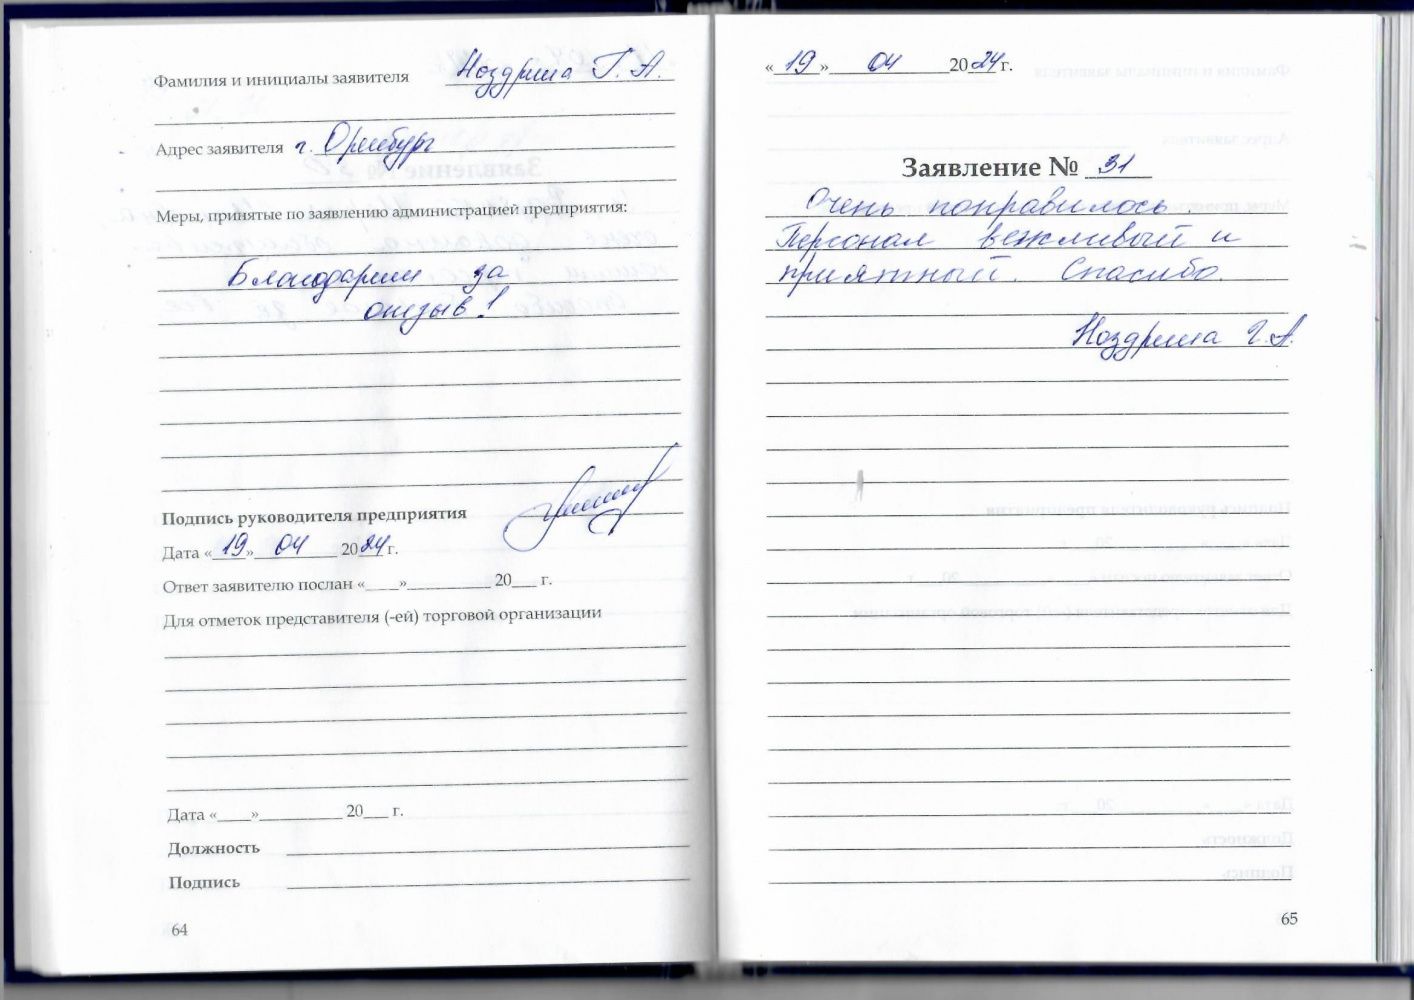 Фамилия и инициалы заявителя Ноздрина Г. А.
Адрес заявителя г. Оренбург
Меры, принятые по заявлению администрацией предприятия:
Благодарим за
отзыв!
Подпись руководителя предприятия
Дата «19» 04 2024г.
Ответ заявителю послан «____»__________ 20___ г.
Для отметок представителя (-ей) торговой организации
Дата «____»__________ 20___ г.
Должность
Подпись
64
«19» 04 2024г.
Заявление № 31
Очень понравилось.
Персонал вежливый и
приятный. Спасибо.
Ноздрина Г.А.
65